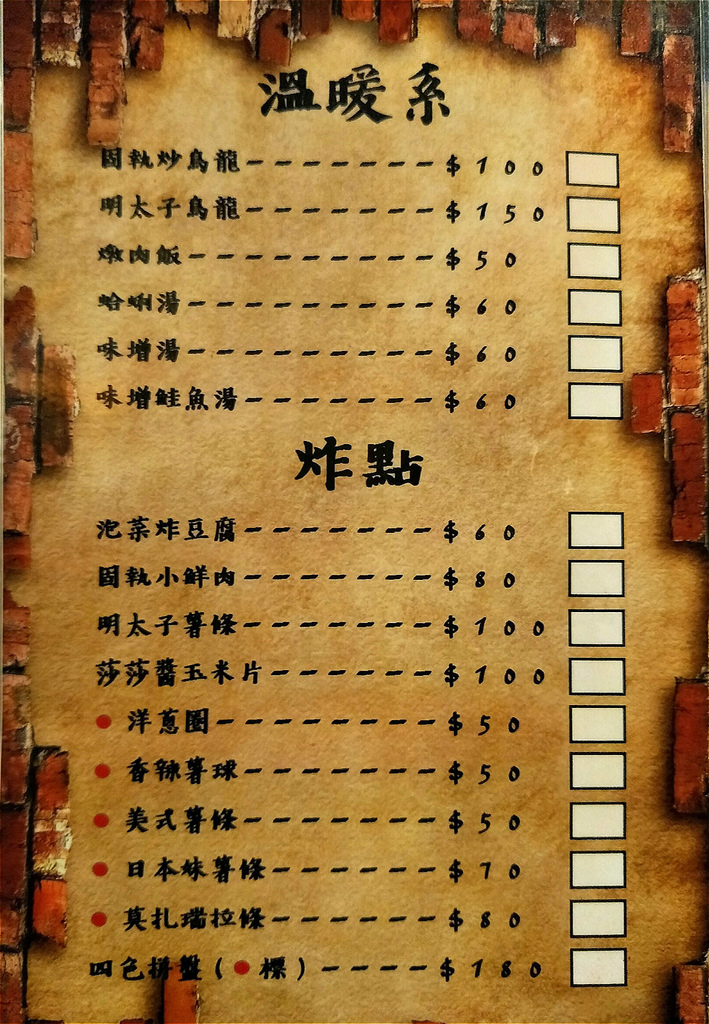 溫暖系
固執炒烏龍－－－－－－－$100
明太子烏龍－－－－－－－$150
燉肉飯－－－－－－－－－$50
蛤蜊湯－－－－－－－－－$60
味增湯－－－－－－－－－$60
味增鮭魚湯－－－－－－－$60
炸點
泡菜炸豆腐－－－－－－－$60
固執小鮮肉－－－－－－－$80
明太子薯條－－－－－－－$100
莎莎醬玉米片－－－－－－$100
● 洋蔥圈－－－－－－－－$50
● 香辣薯球－－－－－－－$50
● 美式薯條－－－－－－－$50
● 日本妹薯條－－－－－－$70
● 莫扎瑞拉條－－－－－－$80
四色拼盤(●標)－－－－$180